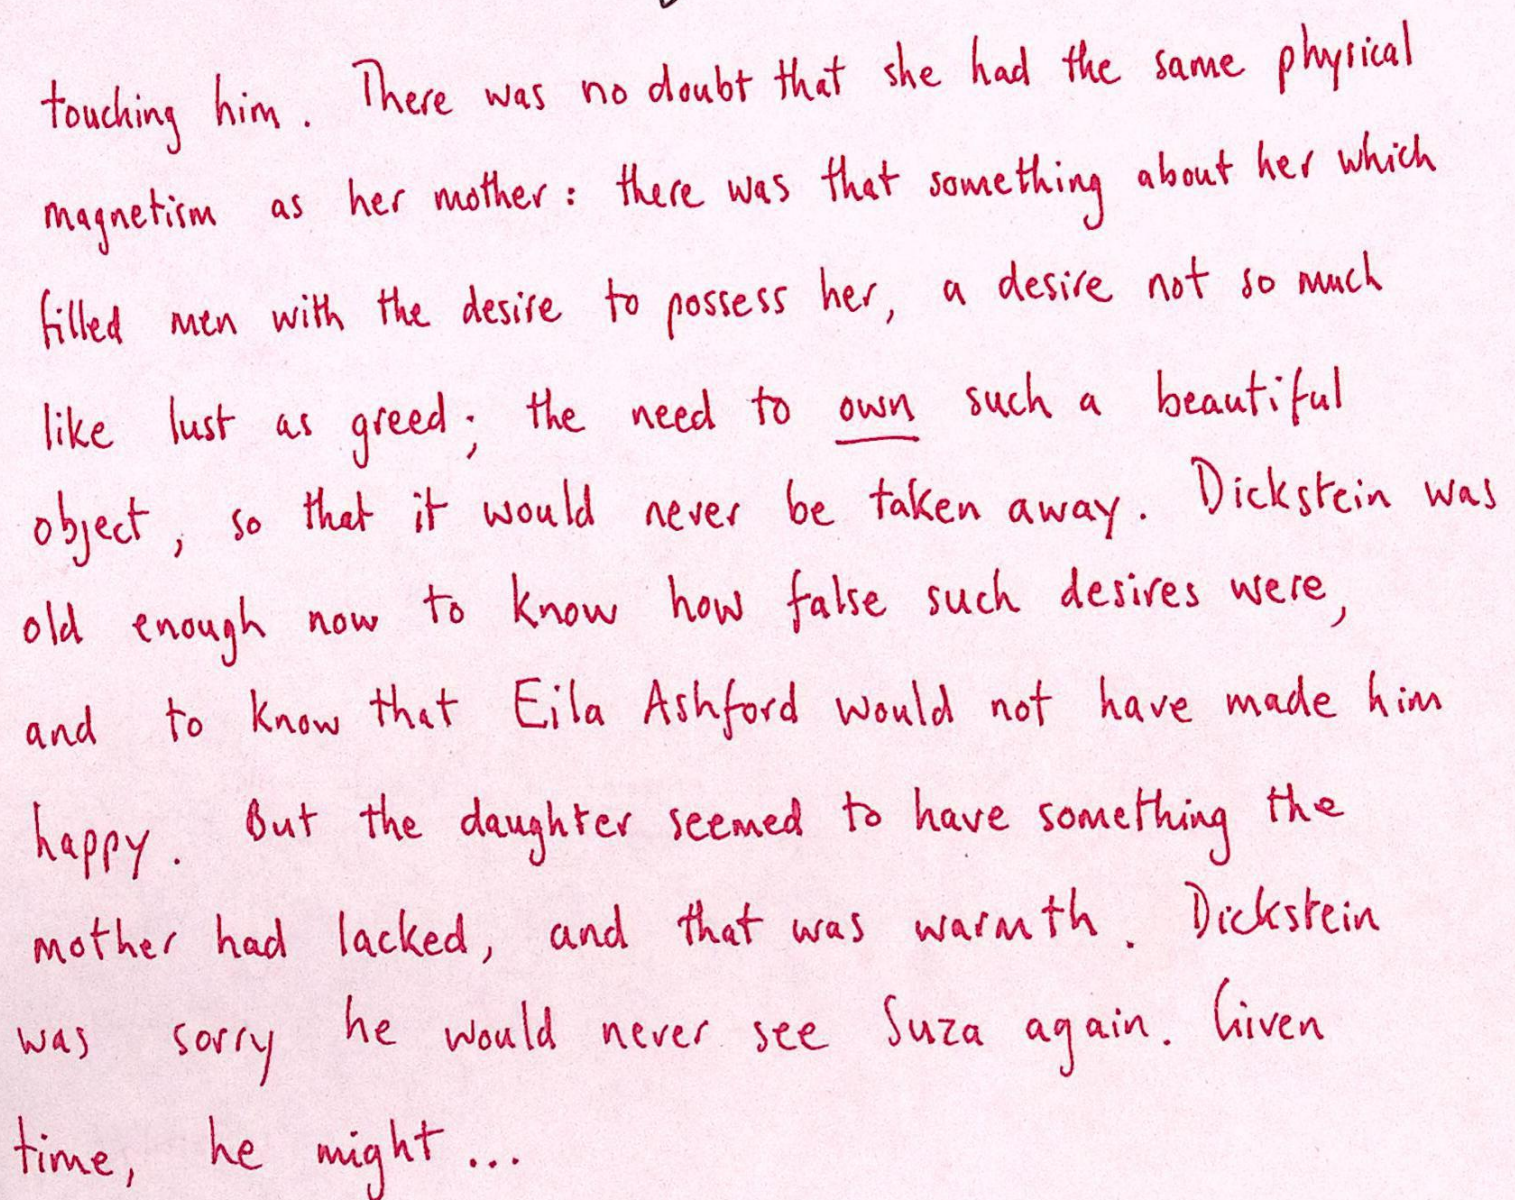 touching him. There was no doubt that she had the same physical
magnetism as her mother: there was that something about her which
filled men with the desire to possess her, a desire not so much
like lust as greed; the need to own such a beautiful
object, so that it would never be taken away. Dickstein was
old enough now to know how false such desires were,
and to know that Eila Ashford would not have made him
happy. But the daughter seemed to have something the
mother had lacked, and that was warmth. Dickstein
was sorry he would never see Suza again. Given
time, he might...